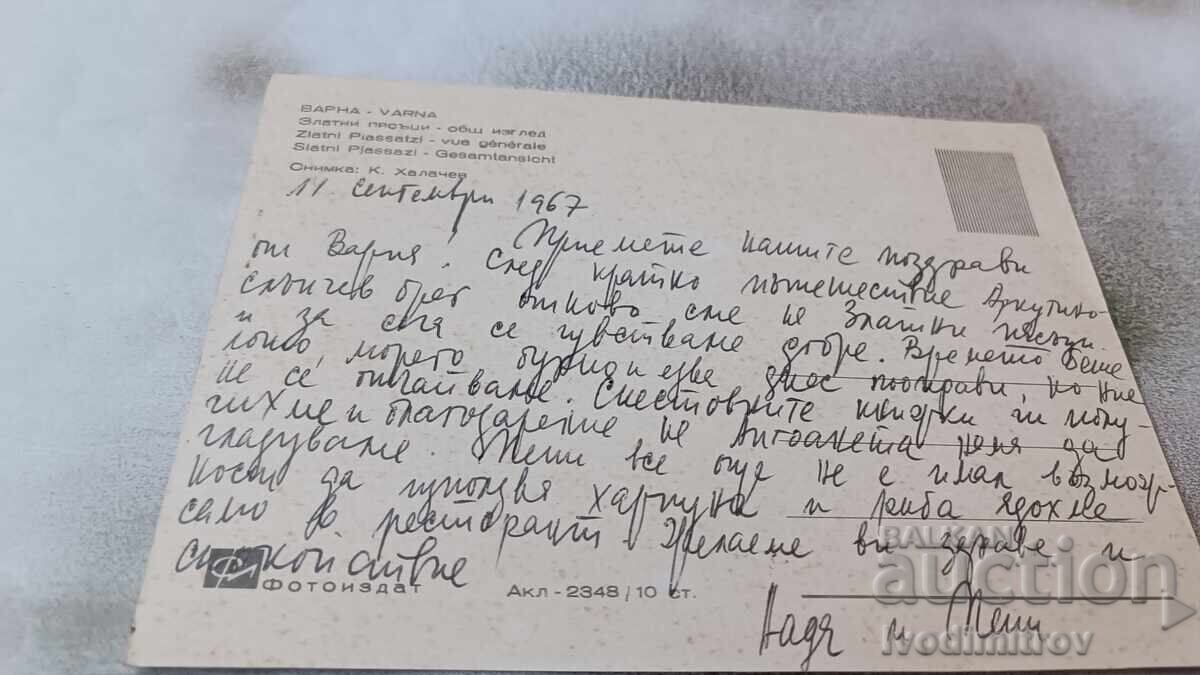 ВАРНА - VARNA
Златни пясъци - общ изглед
Zlatni Piassatzi - vue générale
Slatni Pjassazi - Gesamtansicht
Снимка: К. Халачев
11. септември 1967
Приемете нашите поздрави
от Варна! След кратко пътешествие Аркутино-
Слънчев бряг отново сме на Златни пясъци
и за сега се чувстваме добре. Времето беше
лошо, морето бурно и едва днес пооправи, но ние
не се отчайваме. Спестовните книжки ги
и благодарение на Антоанета няма да
гладуваме. Теши все още не е имал възмож-
ност да използва харпуна и риба ядохме
само в ресторант. Желаем ви здраве и
спокойствие
Надя и Теши
Фотоиздат
Акл - 2348/10 ст.
BALKAN
auction
Ivodimitrov